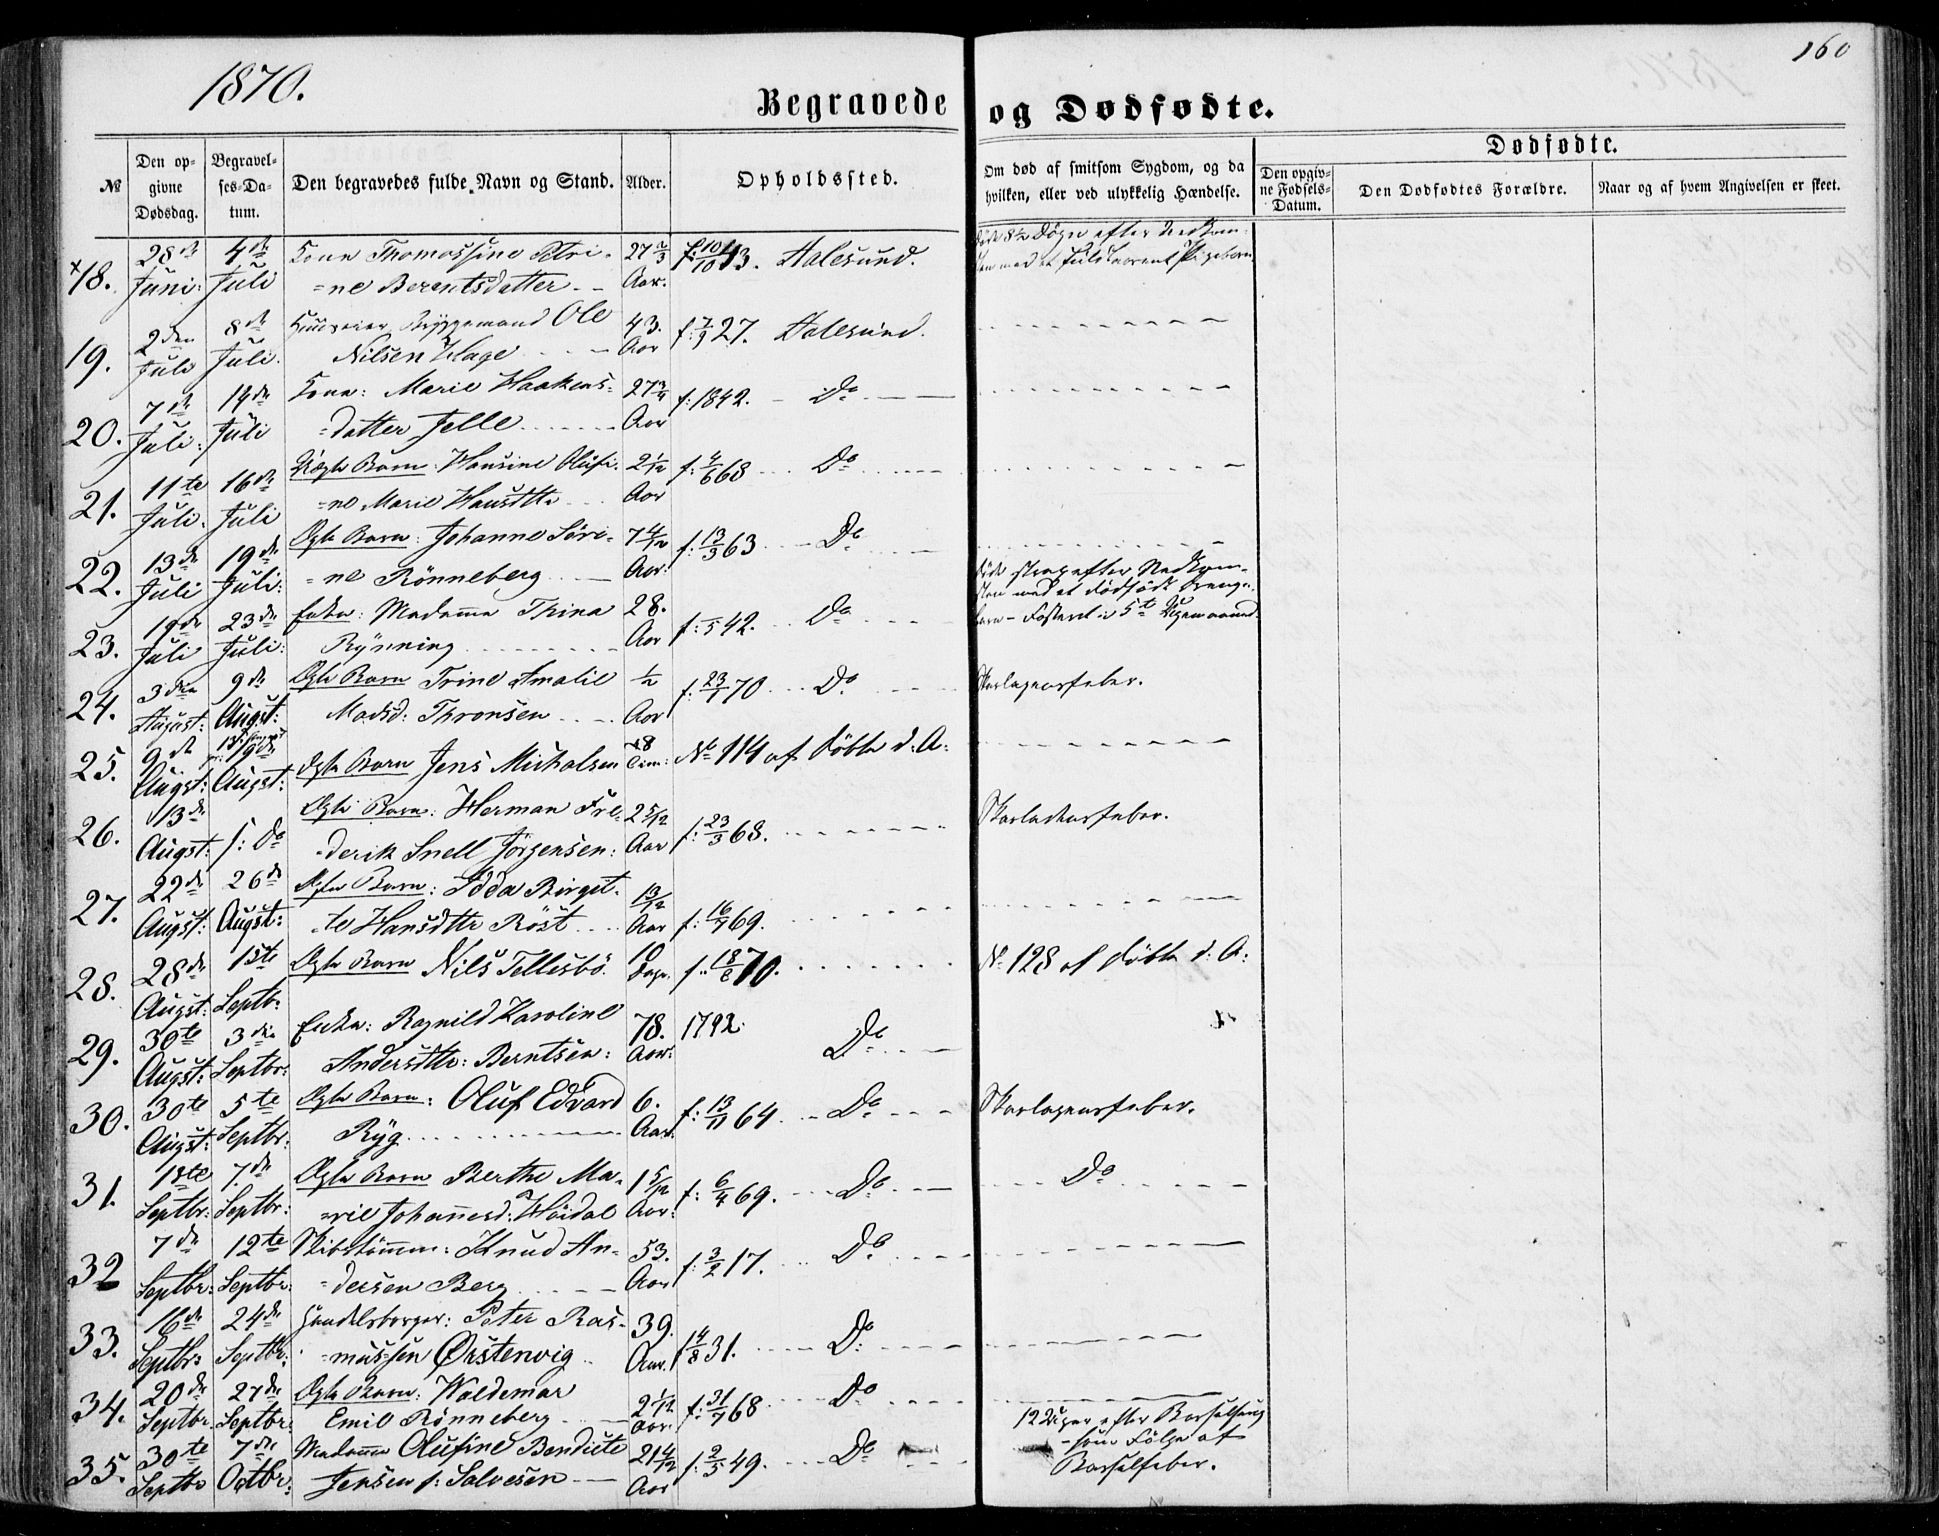 1870.
160
Begravede og Dødfødte.
№
Den opgivne Dødsdag.
Begravelses-Datum.
Den begravedes fulde Navn og Stand.
Alder.
Opholdssted.
Om død af smitsom Sygdom, og da hvilken, eller ved ulykkelig Hændelse.
Dødfødte.
Den opgivne Fødsels-Datum.
Den Dødfødtes Forældre.
Naar og af hvem Angivelsen er skeet.
18. 28de Juni: 4de Juli Kone Thomassine Petri-
=ne Berentsdatter. 27 2/3 Aar. f: 10/10 43. Aalesund.
19. 2den Juli 8de Juli. Ole
Nilsen Hage 43. Aar f: 7/9 27. Aalesund.
20. 7de Juli: 14de Juli Kone: Marie Haakens-
=datter Jelle 27 3/4 Aar f: 1842. Do
21. 11te Juli. 16de Juli Uægte Barn: Hansine Olufi-
=ne Marie Hansdtte 2 1/12 Aar f: 4/6 68 Do
22. 13de Juli 19de Juli: Ægte Barn: Johanne Sŏri-
=ne Rönneberg 7 4/12 Aar: f: 13/3 63 Do
23. 19de Juli 23de Juli: Enke: Madame Thina
Rynning 28. Aar f: 1/5 42. Do
død strax efter Nedkom-
sten med et dødfödt Drenge-
barn - Fosteret i 5te
24. 3den August: 9de Augst: Ægte Barn Trine Amalie
Madsd: Thronsen 1/2 Aar f: 23/1 70 Do Skarlagensfeber.
25. 9de Augst: 19de Augst: Ægte Barn Jens Michalsen 18 Tim: No 114 af döbte d: A:
26. 13de Augst: s: Do Ægte Barn: Herman Fre-
=derik Snell Jörgensen: 2 5/12 Aar f: 23/3 68. Skarlagensfeber.
27. 22de Augst: 26de Augst: Ægte Barn: Idda Birgit-
=te Hansdtte Röst 13/12 Aar f: 16/7 69.
28. 28de Augst: 1ste Septb: Ægte Barn Nils Tellesbö 10 Dage. f: 18/8 70. No 128 af döbte d: A:
29. 30te Augst: 3die Septbr: Enke: Ragnild Karoline
Andersdtte: Berntsen: 78. Aar: 1792. Do
30. 30te Augst: 5te Septbr: Ægte Barn: Oluf Edvard
Ryg 6. Aar. f: 13/11 64 Do Skarlagensfeber.
31. 1ste Septbr: 7de Septbr: Ægte Barn Berthe Ma-
=rie Johannesd: Höidal 1 5/12 Aar: f: 6/4 69. Do Do
32 7de Septbr: 12te Septbr: Skibstömmer: Knud An-
=dersen Berg 53. Aar f: 3/2 17. Do
33. 16de Septbr: 24de Septbr: Handelsborger: Peter Ras-
=mussen Ørstenvig 39. Aar. f 4/8 31. Do
34. 20de Septbr 27de Septbr: Ægte Barn: Waldemar
Emil Rönneberg 2 1/12 Aar: f: 31/7 68 Do
35. 30te Septbr 7de Octbr: Madame Olufine Bendicte
Jensen f: Salvesen 21 4/12 Aar f: 2/5 49. Do
12 Uger efter Barselseng
- som Fölge af
Barselfeber.